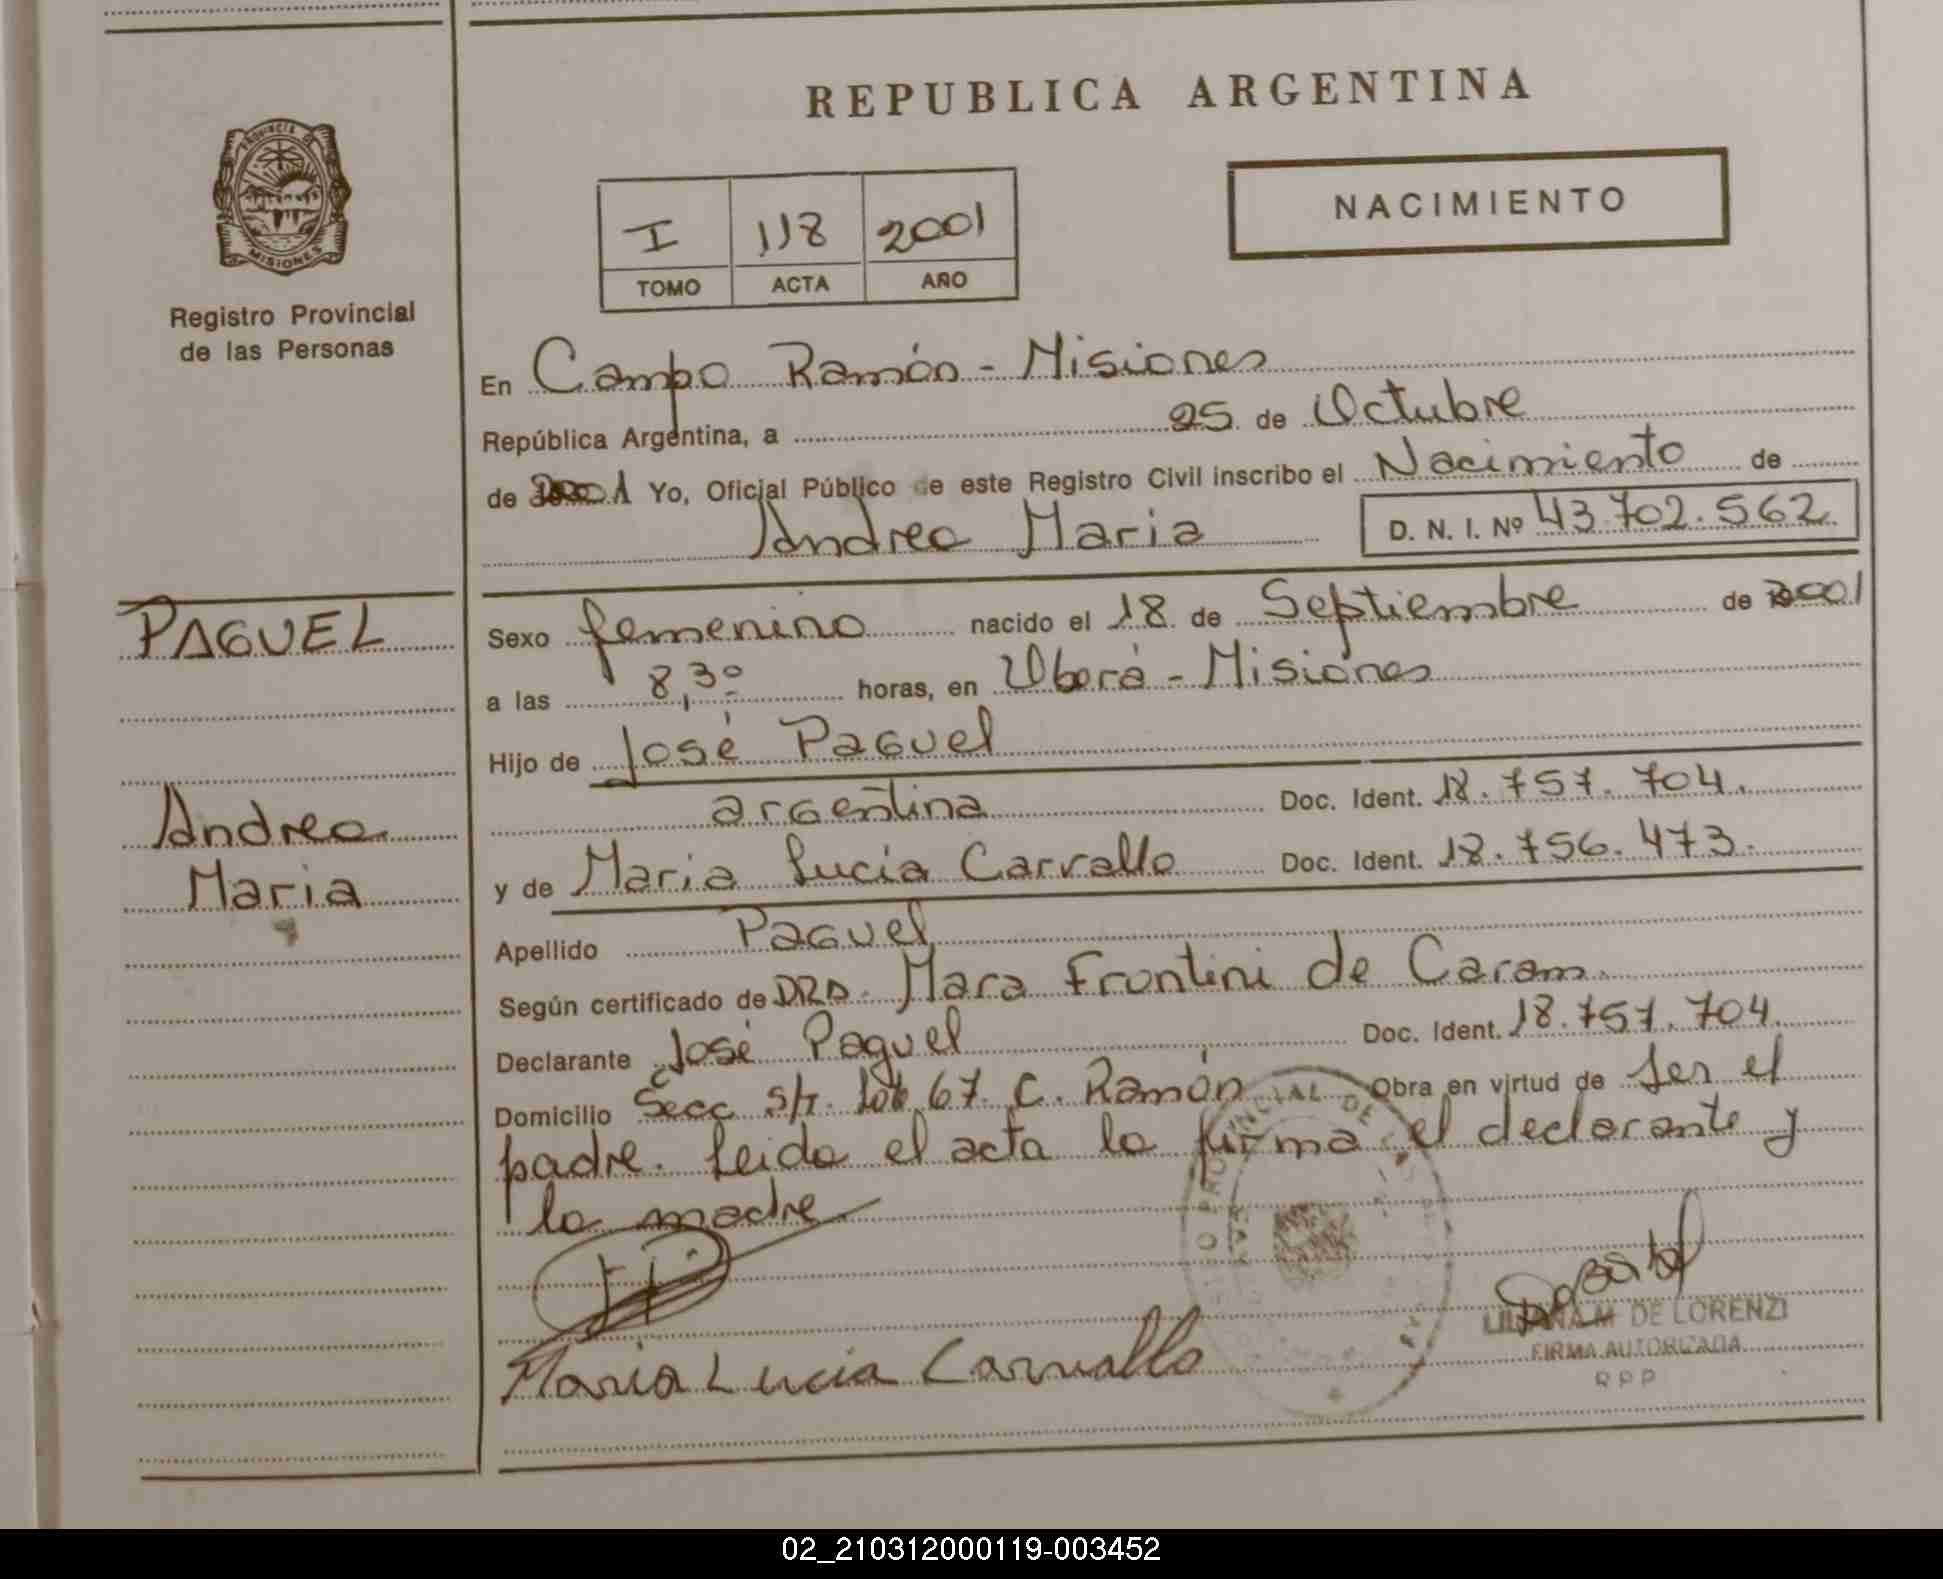 REPUBLICA ARGENTINA
NACIMIENTO
I 118 2001
TOMO ACTA AÑO
PROVINCIA DE
MISIONES
Registro Provincial
de las Personas
En Campo Ramón - Misiones
República Argentina, a 25 de Octubre
de 2001 Yo, Oficial Público de este Registro Civil inscribo el Nacimiento de
Andrea Maria D. N. I. Nº 43.702.562
PAGUEL
Andrea
Maria
Sexo femenino nacido el 18 de Septiembre de 2001
a las 8,30 horas, en Oberá - Misiones
Hijo de José Paguel
argentina Doc. Ident. 18.757.704.
y de Maria Lucía Carvallo Doc. Ident. 18.756.473.
Apellido Paguel
Según certificado de DRA. Mara Frontini de Caram
Declarante José Paguel Doc. Ident. 18.757.704.
Domicilio Secc s/n. lote 67. C. Ramón Obra en virtud de ser el
padre. Leida el acta la firma el declarante y
la madre
JP
Maria Lucia Carvallo
LILIANA M DE LORENZI
FIRMA AUTORIZADA
R P P
02_210312000119-003452